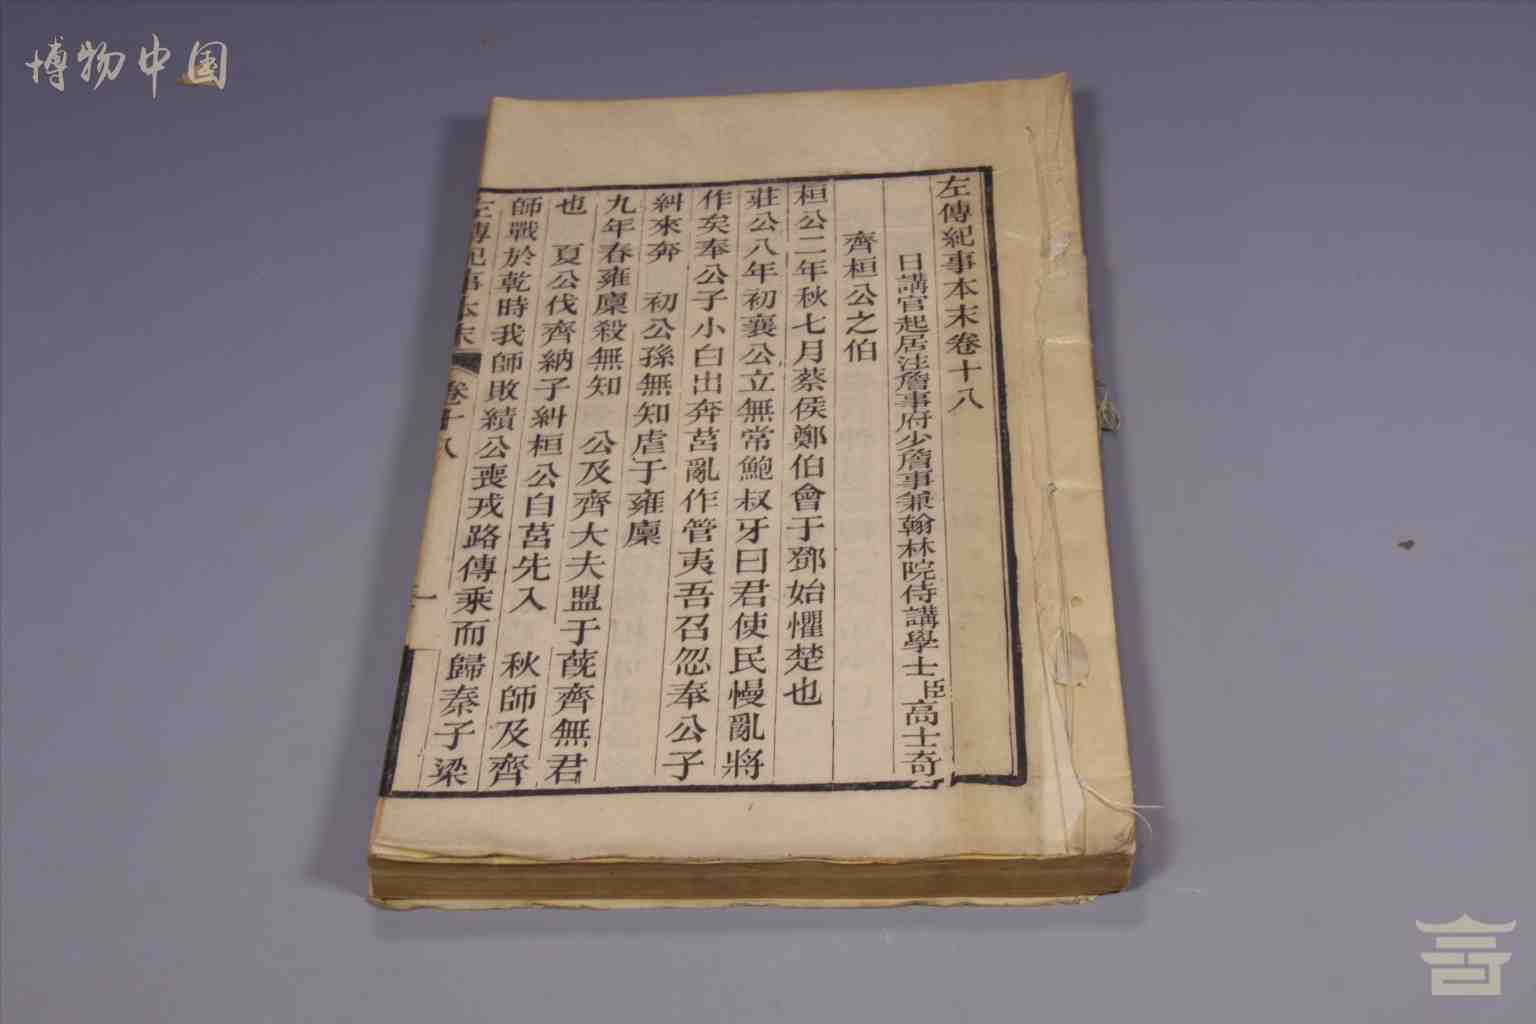 博物中国
左傳紀事本末卷十八
日講官起居注詹事府少詹事兼翰林院侍講學士臣高士奇
齊桓公之伯
桓公二年秋七月蔡侯鄭伯會于鄧始懼楚也
莊公八年初襄公立無常鮑叔牙曰君使民慢亂將
作矣奉公子小白出奔莒亂作管夷吾召忽奉公子
糾來奔 初公孫無知虐于雍廩
九年春雍廩殺無知 公及齊大夫盟于蔇齊無君
也 夏公伐齊納子糾桓公自莒先入 秋師及齊
師戰於乾時我師敗績公喪戎路傳乘而歸秦子梁
左傳紀事本末 卷十八 一